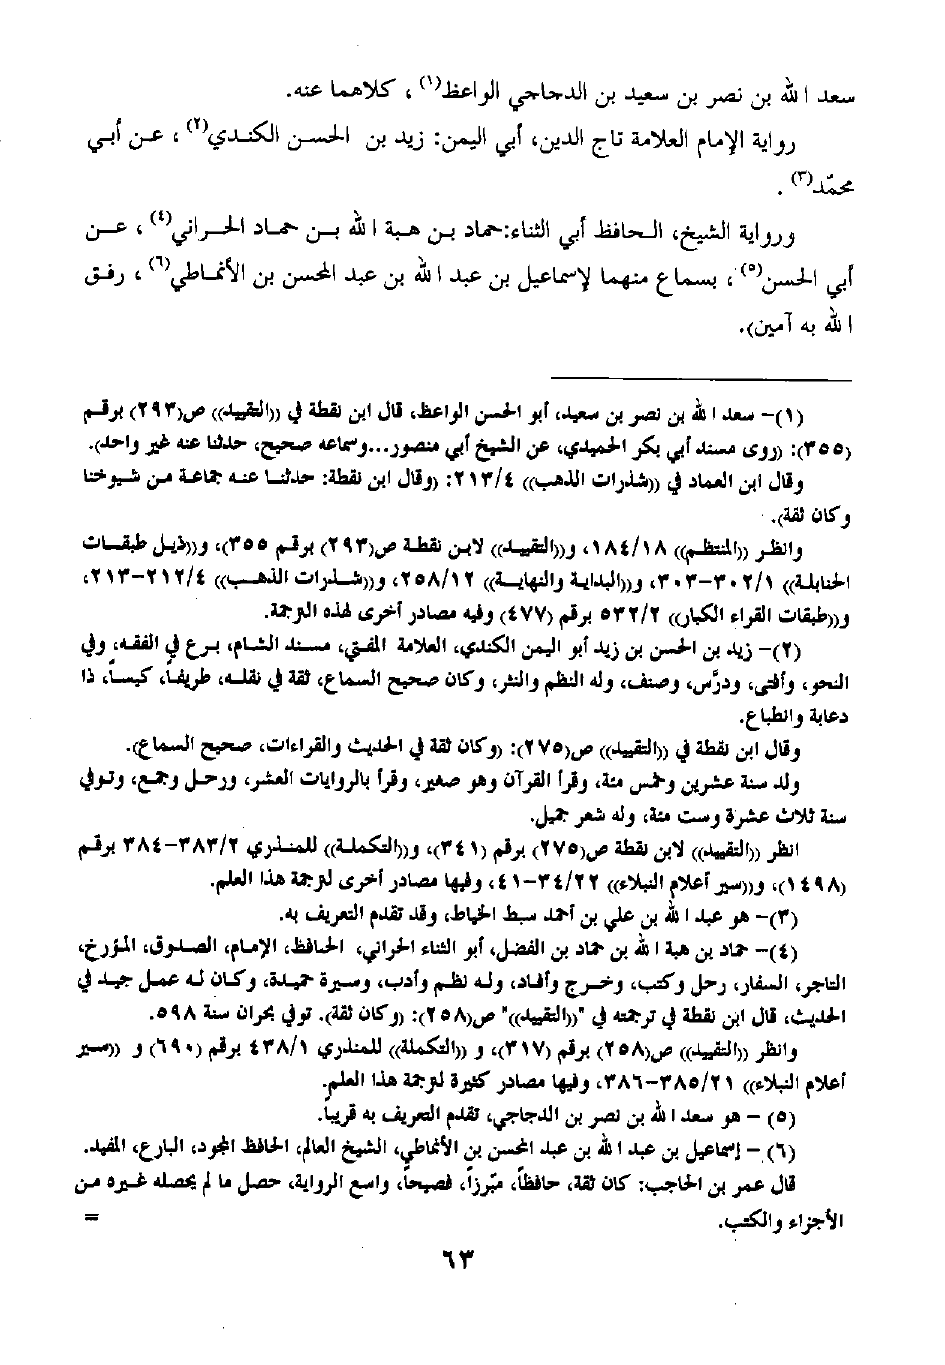 سعد الله بن نصر بن سعيد بن الدجاجي الواعظ(١)، كلاهما عنه.
رواية الإمام العلامة تاج الدين، أبي اليمن: زيد بن الحسن الكندي(٢)، عن أبي
محمّد(٣).
ورواية الشيخ، الحافظ أبي الثناء:حماد بن هبة الله بن حماد الحراني(٤)، عن
أبي الحسن(٥)، بسماع منهما لإسماعيل بن عبد الله بن عبد المحسن بن الأنماطي(٦)، رفق
الله به آمين).
(١)- سعد الله بن نصر بن سعيد، أبو الحسن الواعظ، قال ابن نقطة في ((التقييد)) ص(٢٩٣) برقم
(٣٥٥): ((روى مسند أبي بكر الحميدي، عن الشيخ أبي منصور...وسماعه صحيح، حدثنا عنه غير واحد)).
وقال ابن العماد في ((شذرات الذهب)) ٢١٣/٤: ((وقال ابن نقطة: حدثنا عنه جماعة من شيوخنا
وكان ثقة)).
وانظر ((المنتظم)) ١٨٤/١٨، و((التقييد)) لابن نقطة ص(٢٩٣) برقم ٣٥٥)، و((ذيل طبقات
الحنابلة)) ٣٠٢/١-٣٠٣، و((البداية والنهاية)) ٢٥٨/١٢، و((شذرات الذهب)) ٢١٢/٤-٢١٣،
و((طبقات القراء الكبار)) ٥٣٢/٢ برقم (٤٧٧) وفيه مصادر أخرى لهذه الترجمة.
(٢)- زيد بن الحسن بن زيد أبو اليمن الكندي، العلامة المفتي، مسند الشام، برع في الفقه، وفي
النحو، وأفتى، ودرَّس، وصنف، وله النظم والنثر، وكان صحيح السماع، ثقة في نقله، ظريفاً، كيساً، ذا
دعابة وانطباع.
وقال ابن نقطة في ((التقييد)) ص(٢٧٥): ((وكان ثقة في الحديث والقراءات، صحيح السماع)).
ولد سنة عشرين وخمس مئة، وقرأ القرآن وهو صغير، وقرأ بالروايات العشر، ورحل وجمع، وتوفي
سنة ثلاث عشرة وست مئة، وله شعر جميل.
انظر ((التقييد)) لابن نقطة ص(٢٧٥) برقم (٣٤١)، و((التكملة)) للمنذري ٣٨٣/٢-٣٨٤ برقم
(١٤٩٨)، و((سير أعلام النبلاء)) ٣٤/٢٢-٤١، وفيها مصادر أخرى لترجمة هذا العلم.
(٣)- هو عبد الله بن علي بن أحمد سبط الخياط، وقد تقدم التعريف به.
(٤)- حماد بن هبة الله بن حماد بن الفضل، أبو الثناء الحراني، الحافظ، الإمام، الصدوق، المؤرخ،
التاجر، السفار، رحل وكتب، وخرج وأفاد، وله نظم وأدب، وسيرة حميدة، وكان له عمل جيد في
الحديث، قال ابن نقطة في ترجمته في "((التقييد))" ص(٢٥٨): ((وكان ثقة)). توفي بحران سنة ٥٩٨.
وانظر ((التقييد)) ص(٢٥٨) برقم (٣١٧)، و ((التكملة)) للمنذري ٤٣٨/١ برقم (٦٩٠) و ((سير
أعلام النبلاء)) ٣٨٥/٢١-٣٨٦، وفيها مصادر كثيرة لترجمة هذا العلم.
(٥) - هو سعد الله بن نصر بن الدجاجي، تقدم التعريف به قريباً.
(٦) - إسماعيل بن عبد الله بن عبد المحسن بن الأنماطي، الشيخ العالم، الحافظ المجود، البارع، المفيد.
قال عمر بن الحاجب: كان ثقة، حافظاً، مبّرزاً، فصيحاً، واسع الرواية، حصل ما لم يحصله غيره من
الأجزاء والكتب. =
٦٣